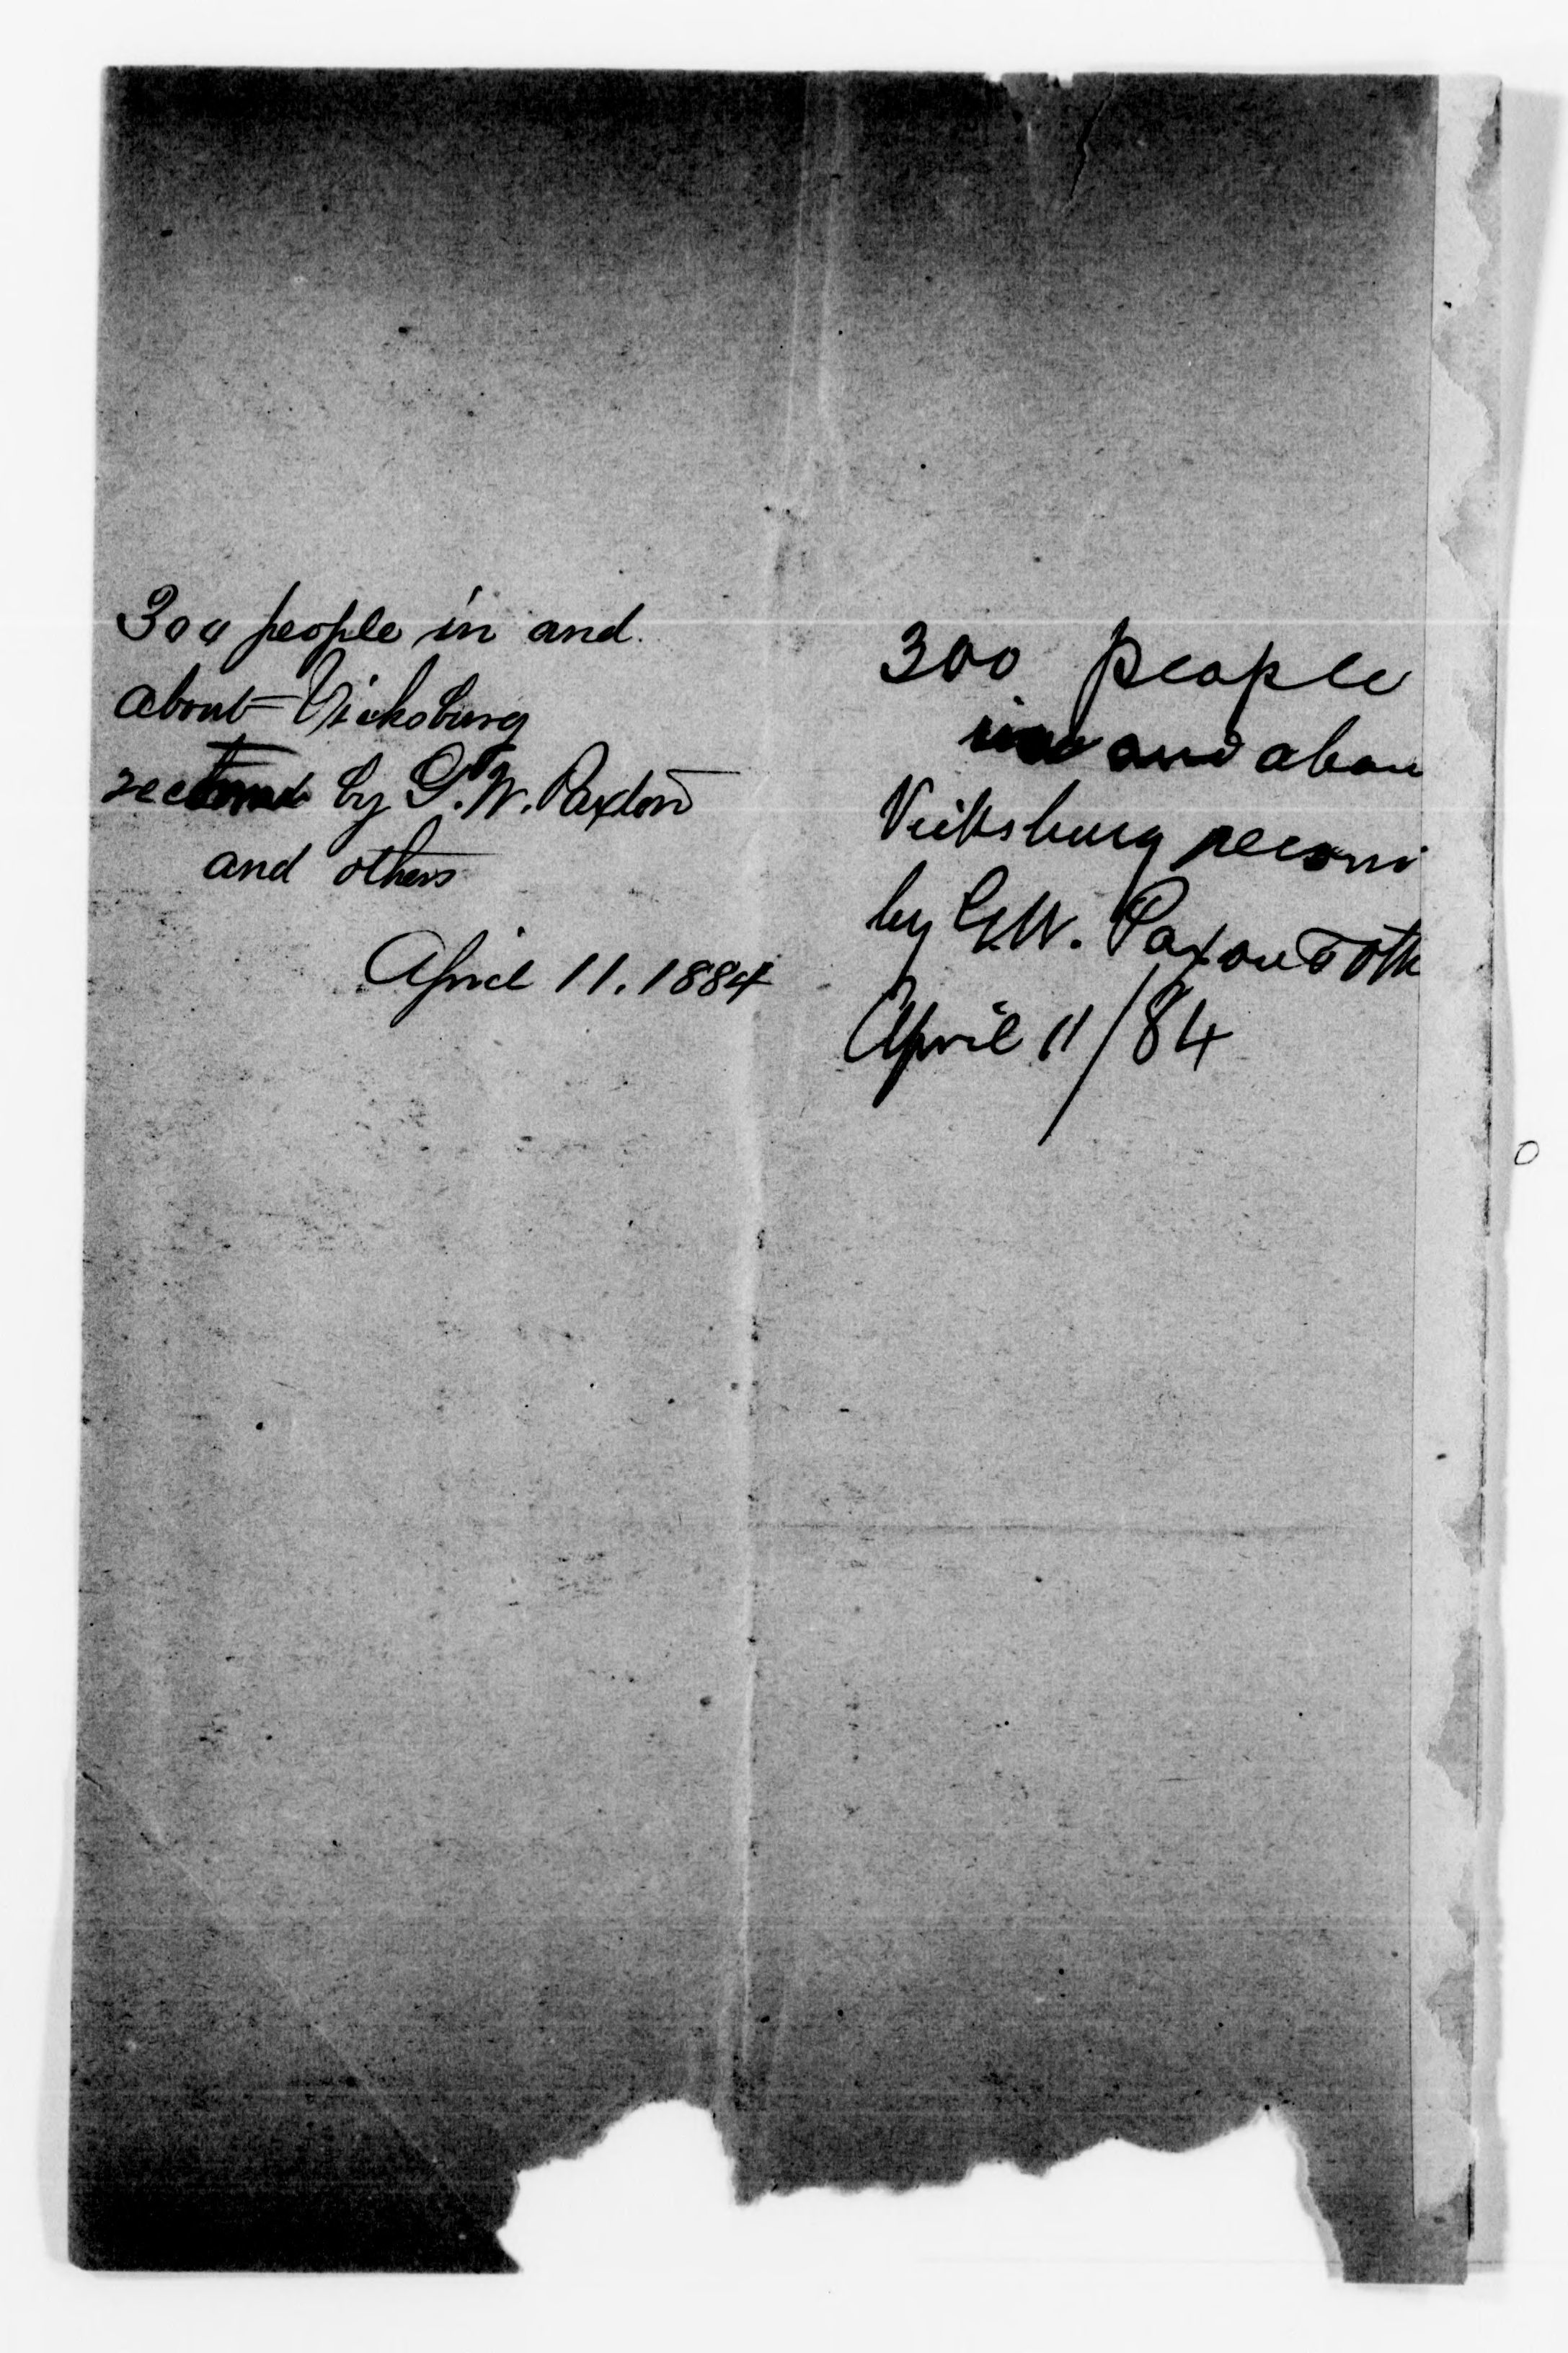 300 people in and
about Vicksburg
by G. W. Paxton
and others
April 11. 1884
300 people
in and abou
Vicksburg recom
by G.W. Paxon & oth
April 11/84